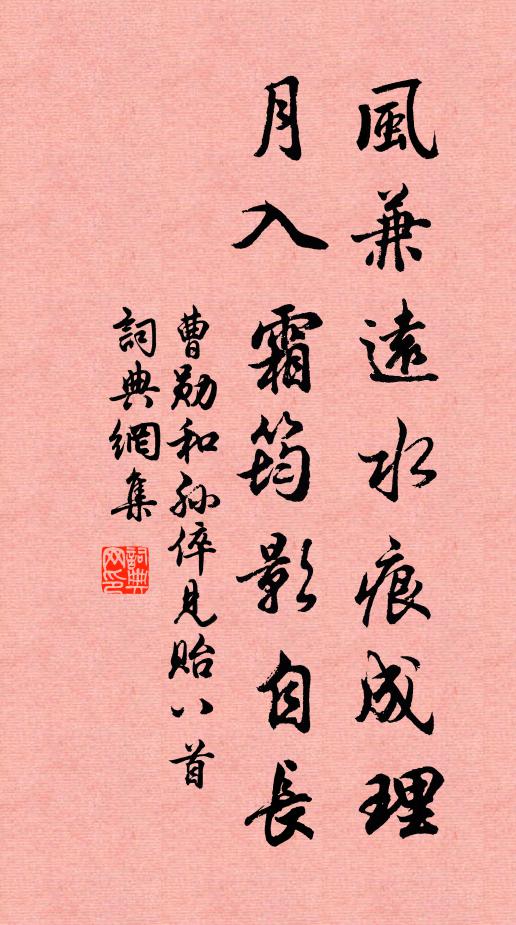 風兼遠水痕成理
月入霜筠影自長
曹勛和孫倅見貽八首
詞典網集
詞典网印